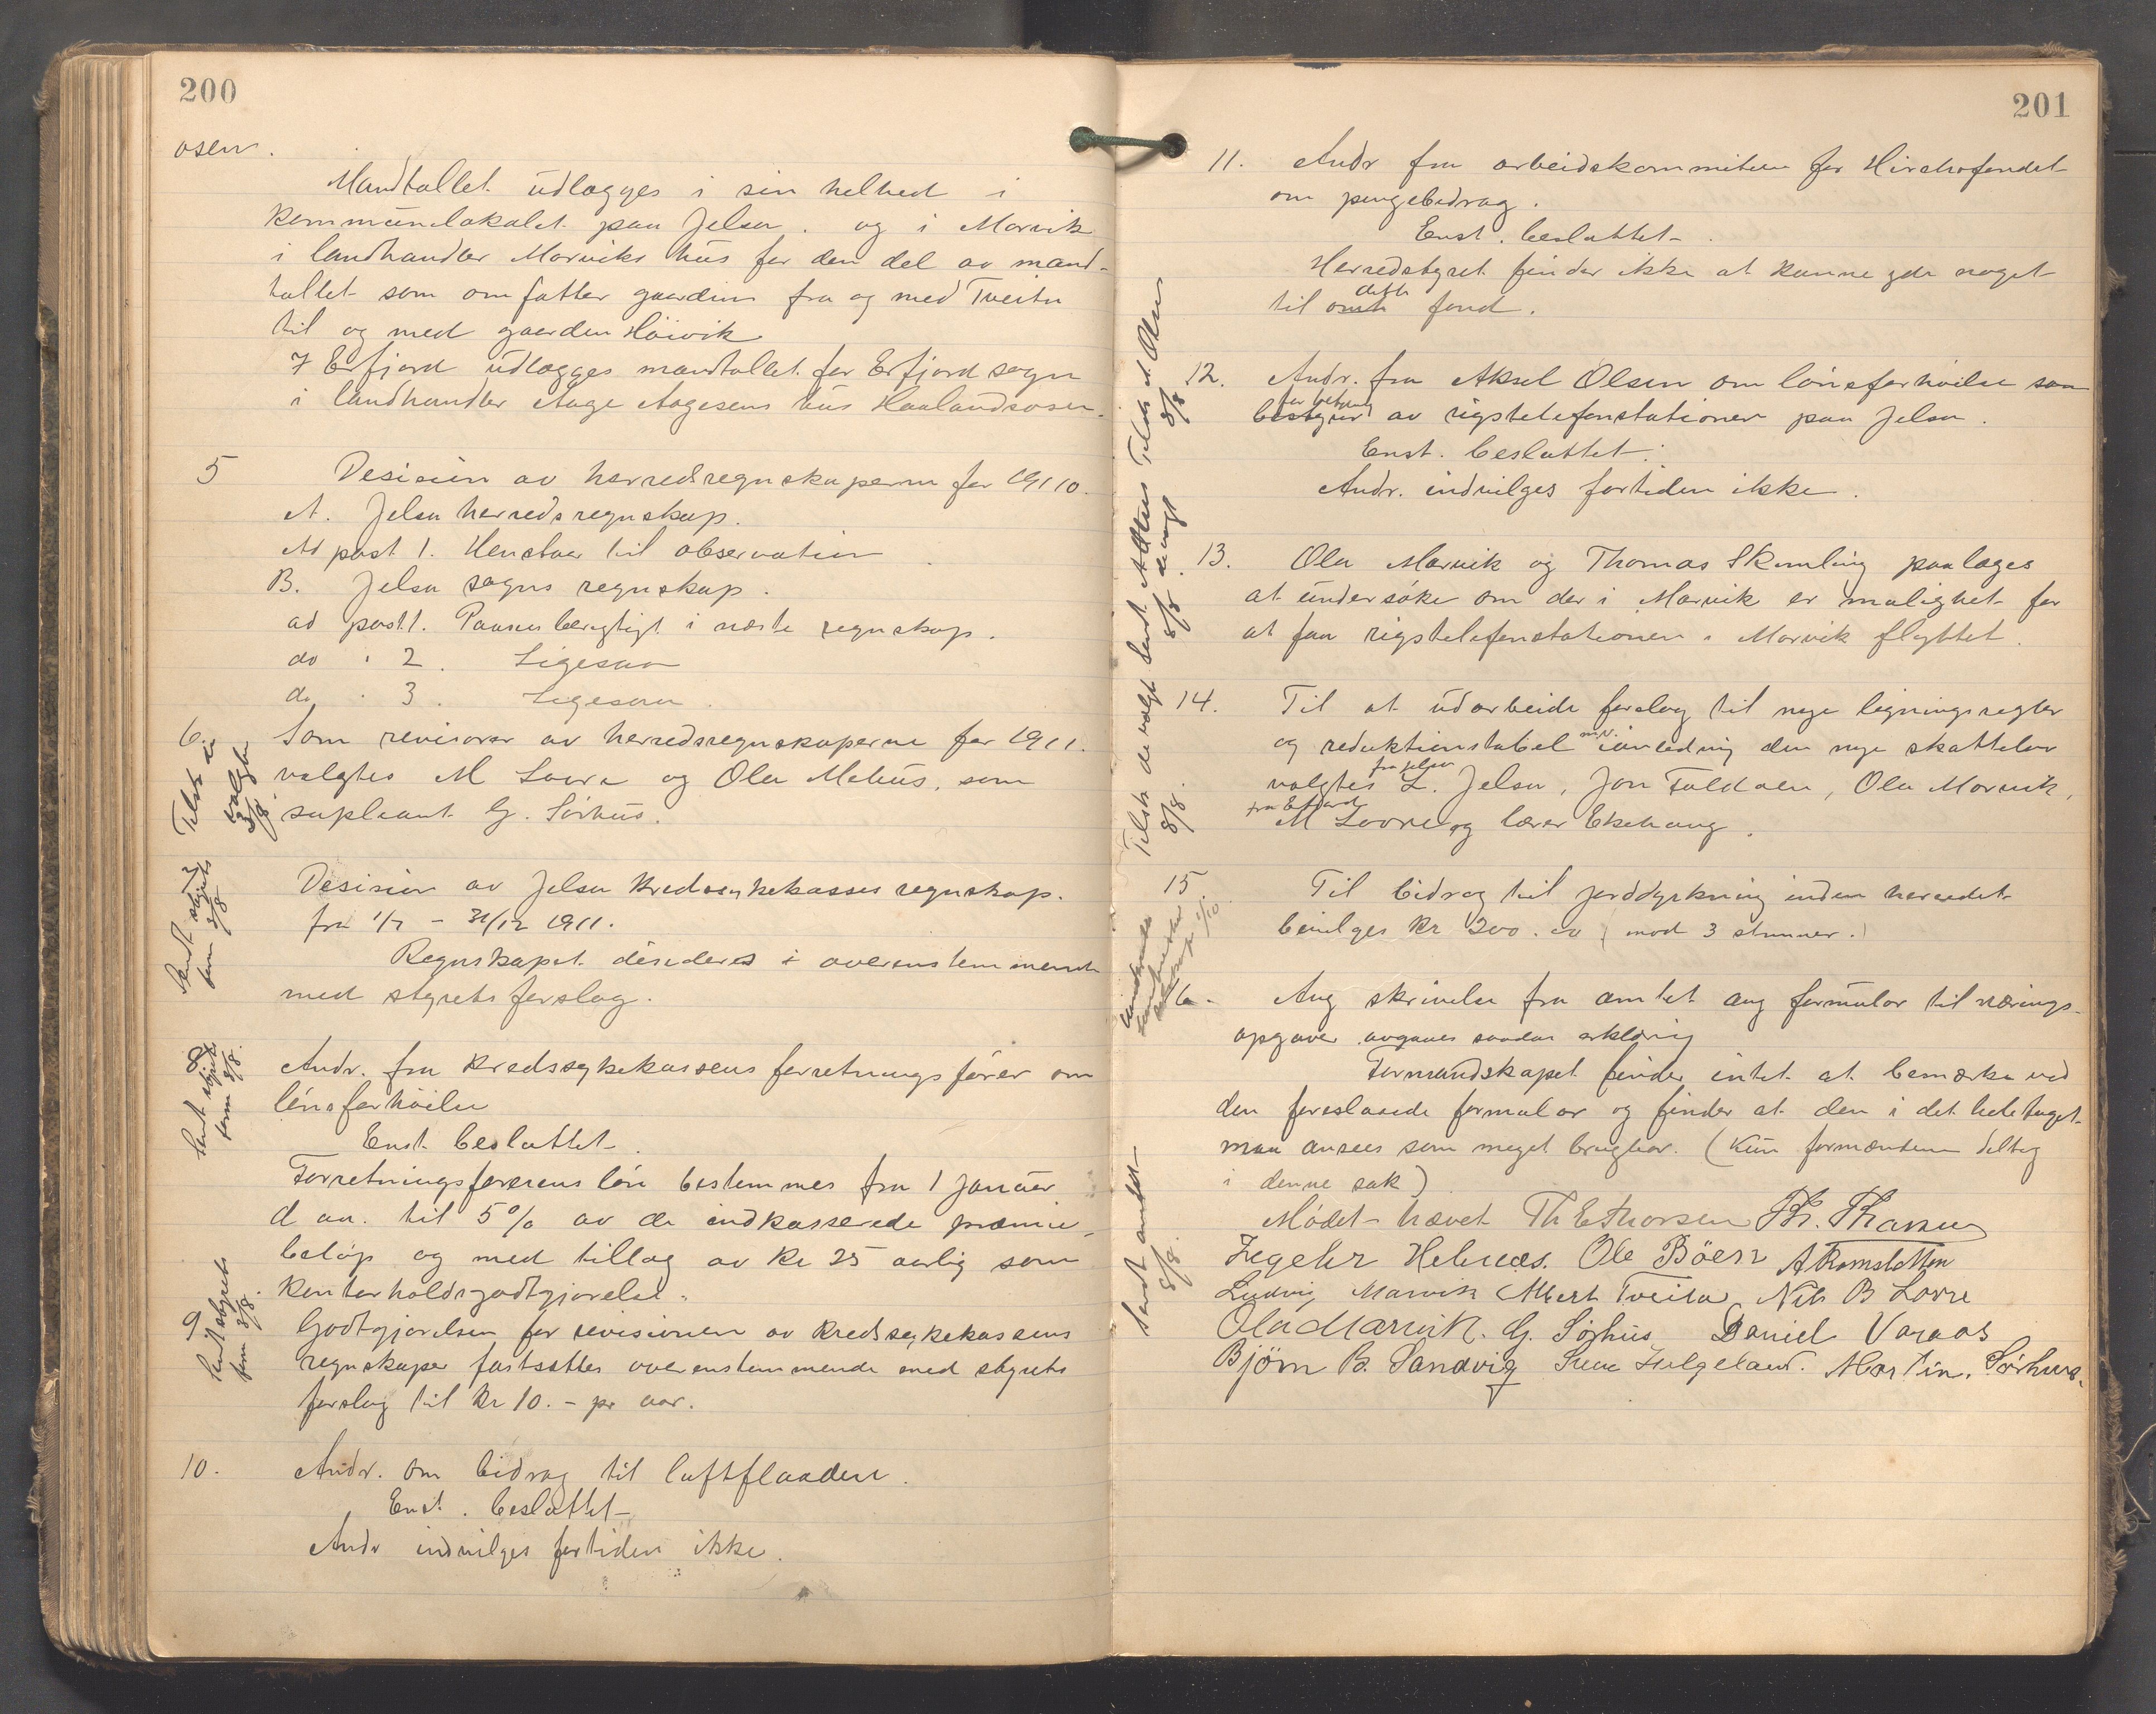 200
osen.
Mandtallet udlægges i sin helhed i
kommunelokalet paa Jelsa. og i Marvik
i landhandler Marviks hus for den del av mand-
tallet som omfatter gaardene fra og med Tveita
til og med gaarden Höivik
I Erfjord udlægges mandtallet for Erfjord sogn
i landhandler Aage Aagesens hus Haalandsosen.
5 Desision av herredsregnskaperne for 1910.
A. Jelsa herredsregnskap.
Ad post 1. Henstaar til observation
B. Jelsa sogns regnskap.
ad post 1. Paanes berigtiget i næste regnskap.
do " 2. Ligesaa
do " 3. Ligesaa.
6. Som revisorer av herredsregnskaperne for 1911.
valgtes M Lovra og Ola Mehus, som
supleant G. Sörhus.
Tilst de valgte 8/8.
7 Desision av Jelsa Kredssykekasses regnskap.
fra 1/7 - 31/12 1911.
Regnskapet desideres i overenstemmende
med styrets forslag.
Sendt styrets form 8/8
8 Andr. fra Kredssykekassens forretningsförer om
lönsforhöielse
Enst besluttet.
Forretningsförerens lön bestemmes fra 1 januar
d aa. til 5% av de indkasserede præmie-
belöp og med tillæg av Kr 25 aarlig som
Kontorholdsgodtgjörelse.
Sendt styrets form 8/8.
9 Godtgjörelsen for revisionen av Kredssykekassens
regnskaper fastsættes overenstemmende med styrets
forslag til Kr 10.- pr aar.
Sendt styrets form 8/8.
10. Andr. om bidrag til luftflaaden.
Enst. besluttet
Andr indvilges fortiden ikke.
201
11. Andr fra arbeidskommiteen for Hirschsfondet
om pengebidrag.
Enst. besluttet.
Herredstyret finder ikke at kunne yde noget
til dette fond.
12. Andr. fra Aksel Olsen om lönsforhöielse som
bestyrer av rigstelefonstationen paa Jelsa.
Enst. besluttet:
Andr. indvilges fortiden ikke.
Tilst A. Olsen 8/8
13. Ola Marvik og Thomas Skimling paalæges
at undersöke om der i Marvik er mulighet for
at faa rigstelefonstationen i Marvik flyttet.
8/8
14. Til at udarbeide forslag til nye ligningsregler
og reduktionstabel m.v. i anledning den nye skattelov
valgtes fra Jelsa L. Jelsa, Jon Foldöen, Ola Marvik,
fra Erfjord M Lovra og lærer Ekehaug.
Tilst de valgte 8/8.
15. Til bidrag til jorddyrkning inden herredet
bevilges Kr 200.00 (mod 3 stemmer.)
16. Ang skrivelse fra amtet ang formular til nærings-
opgaver avgaves saadan erklæring
Formandskapet finder intet at bemærke ved
den foreslaaede formular og finder at den i det heletaget
maa ansees som meget brugbar. (Kun formændene deltog
i denne sak)
Sendt amtet 8/8.
Mödet hævet Th E Thorsen Th. Thorsen
Zegelhr Helnæs. Ole Böen A Ramsletten
Ludvig Marvik Albert Tveita Nils B Lovra
Ola Marvik. G. Sörhus Daniel Varaas
Björn B. Sandvig Svein Helgeland. Martin. Sörhus.